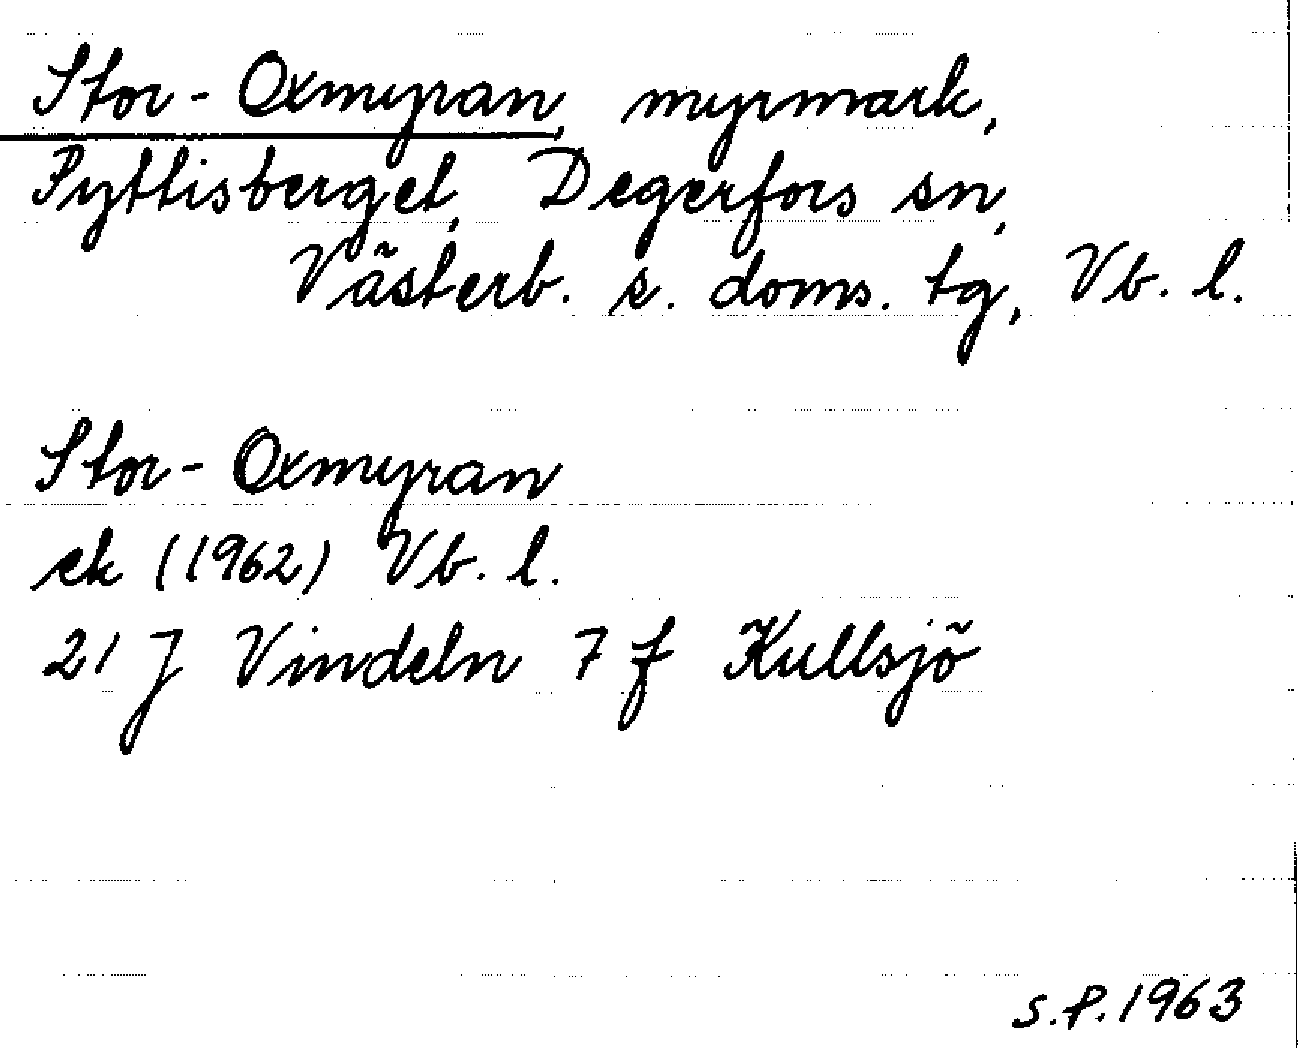 Stor-Oxmyran, myrmark,
Pyttisberget, Degerfors sn,
Västerb. s. doms. tg, Vb. l.
Stor-Oxmyran
ek (1962) Vb. l.
21 J Vindeln 7 f Kullsjö
S.P. 1963